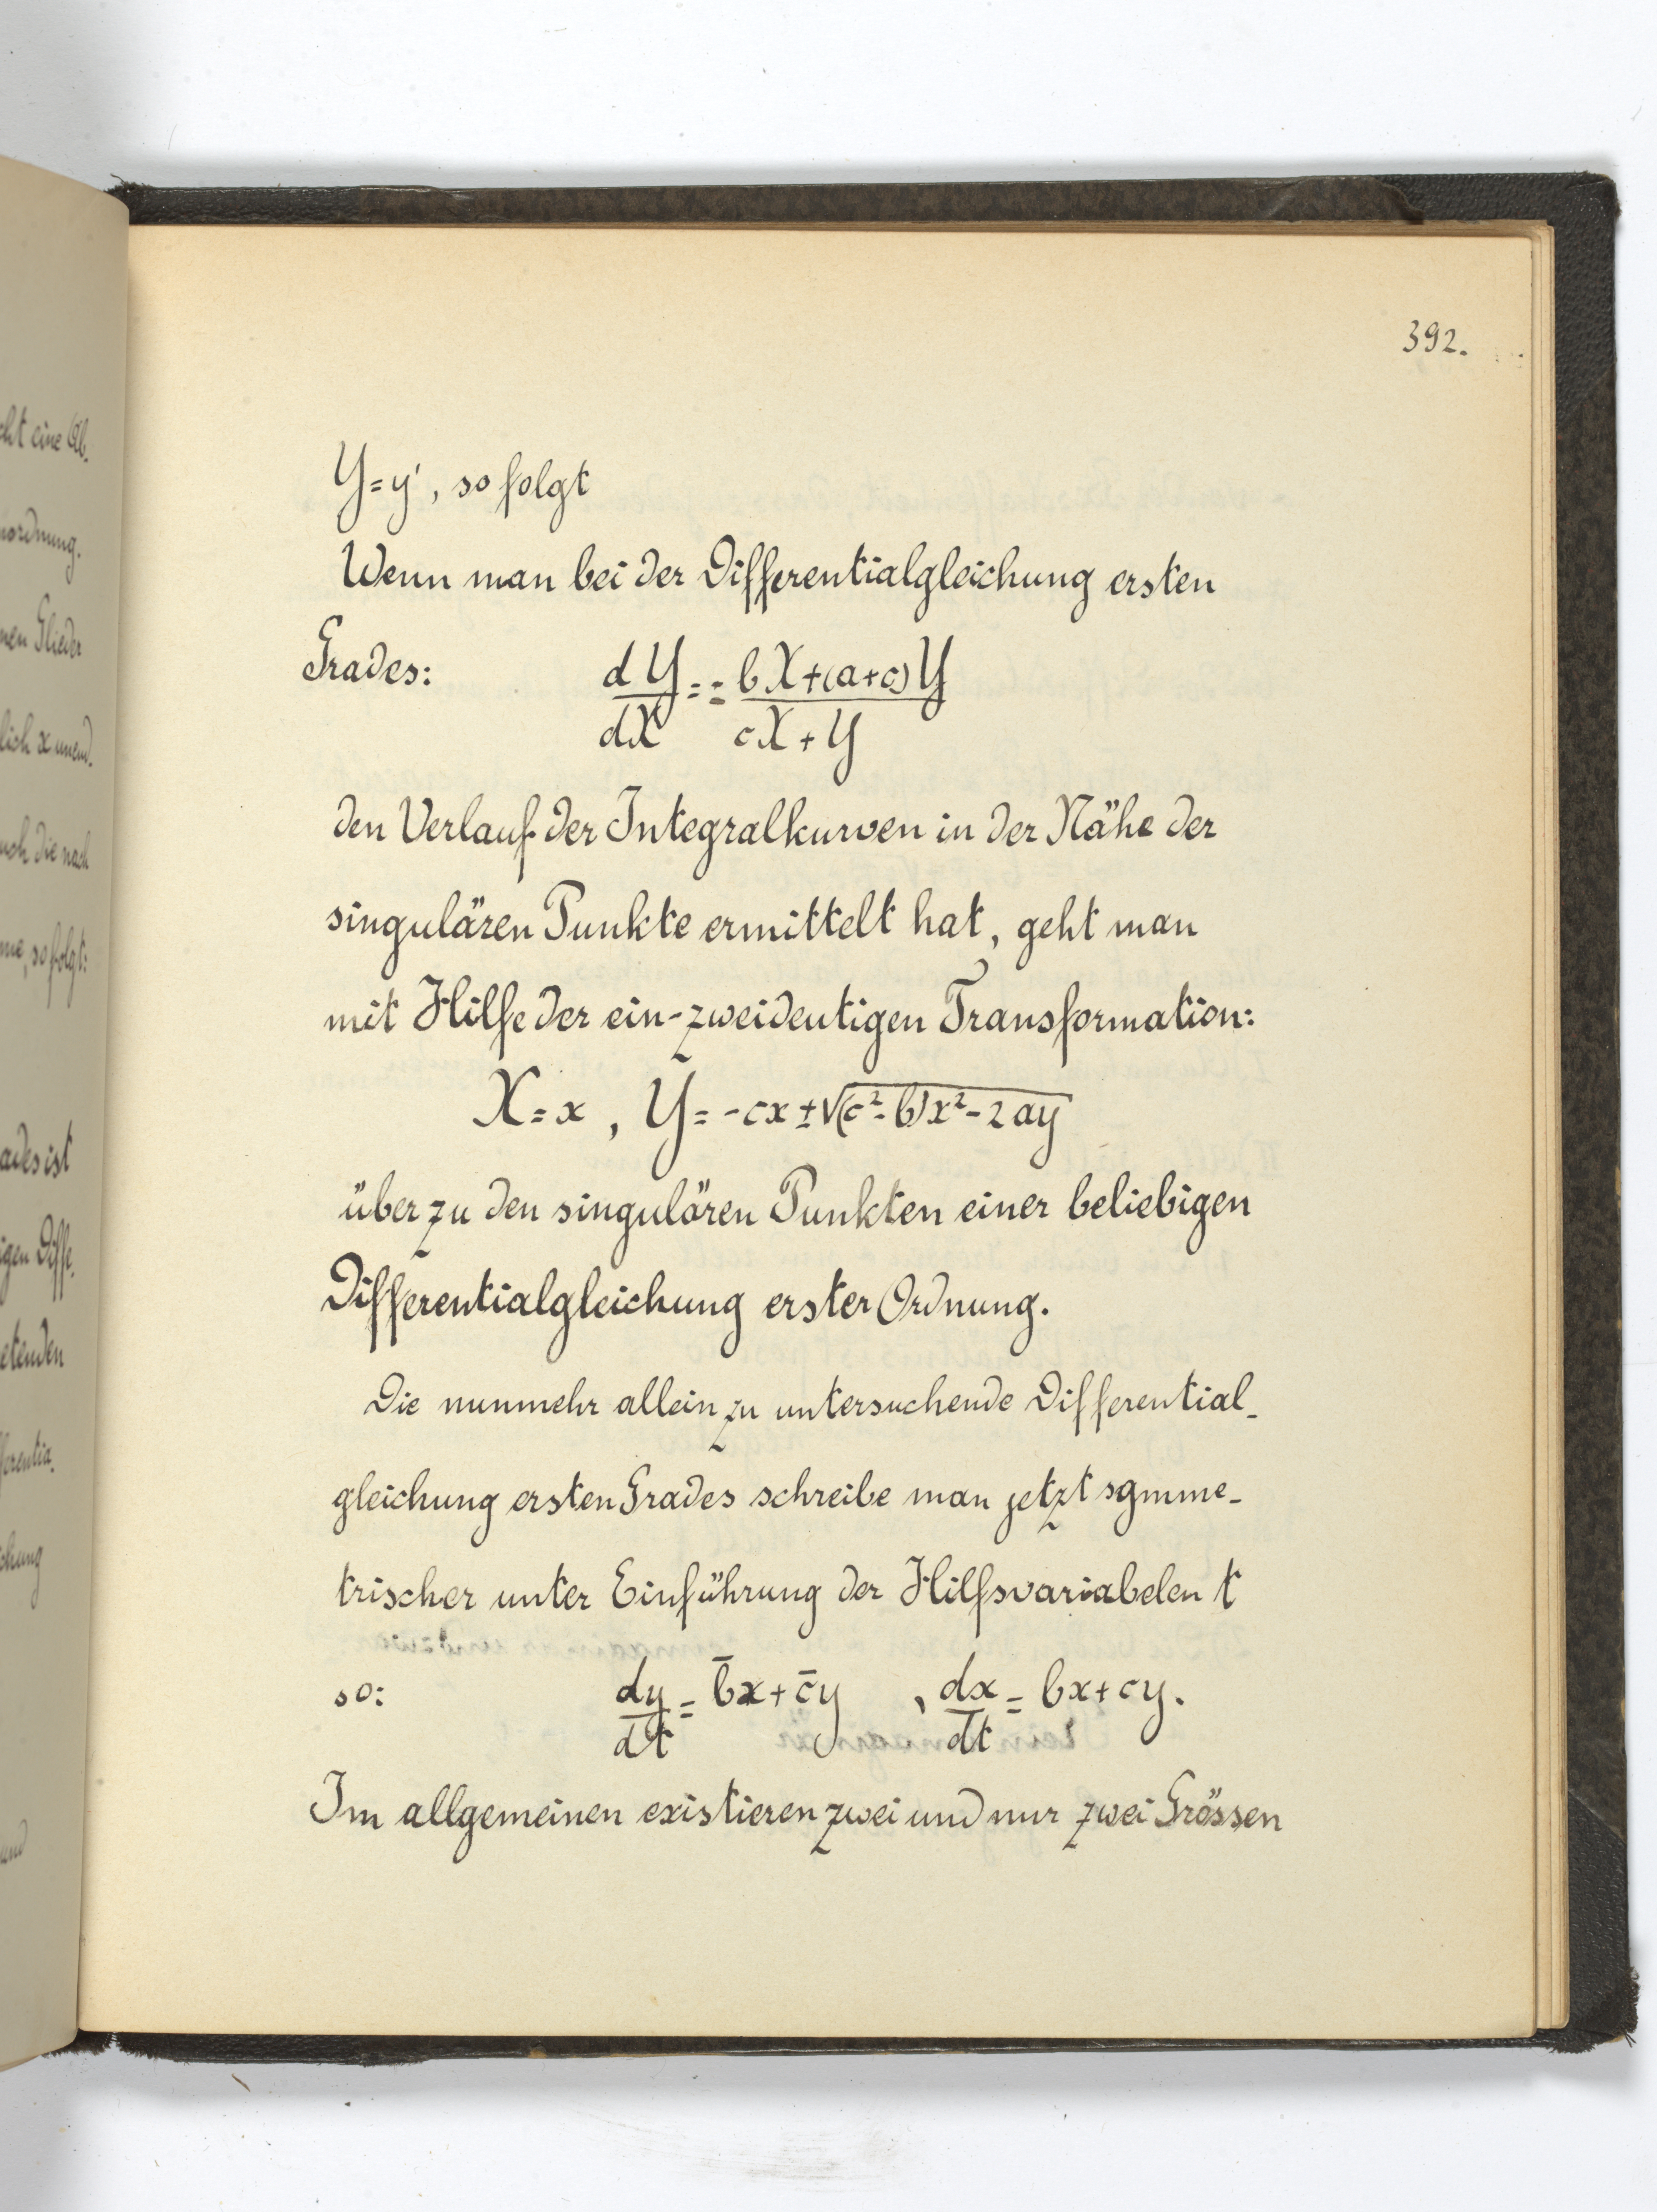 cht eine Ab-
nordnung.
nen Glieder
lich x unend-
uch die nach
me, so folgt:
ades ist
igen Diffe-
etenden
fferentia-
chung
und
392.
Y=y', so folgt
Wenn man bei der Differentialgleichung ersten
Grades: dY/dX = - bX+(a+c)Y / cX+Y
den Verlauf der Integralkurven in der Nähe der
singulären Punkte ermittelt hat, geht man
mit Hilfe der ein-zweideutigen Transformation:
X=x, Y=-cx±√(c²-b)x²-2ay
über zu den singulären Punkten einer beliebigen
Differentialgleichung erster Ordnung.
Die nunmehr allein zu untersuchende Differential-
gleichung ersten Grades schreibe man jetzt symme-
trischer unter Einführung der Hilfsvariabelen t
so: dy/dt = b̄x+c̄y, dx/dt = bx+cy.
Im allgemeinen existieren zwei und nur zwei Grössen